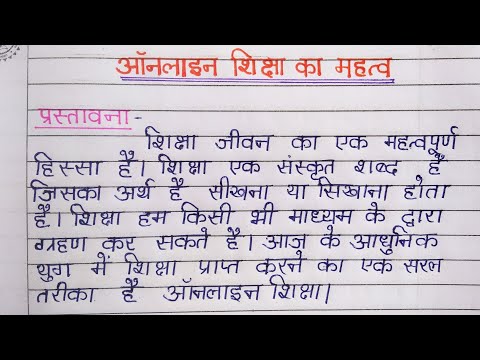 ऑनलाइन शिक्षा का महत्व
प्रस्तावना -
शिक्षा जीवन का एक महत्वपूर्ण
हिस्सा है। शिक्षा एक संस्कृत शब्द है
जिसका अर्थ है सीखना या सिखाना होता
है। शिक्षा हम किसी भी माध्यम के द्वारा
ग्रहण कर सकते है। आज के आधुनिक
युग में शिक्षा प्राप्त करने का एक सरल
तरीका है ऑनलाइन शिक्षा।